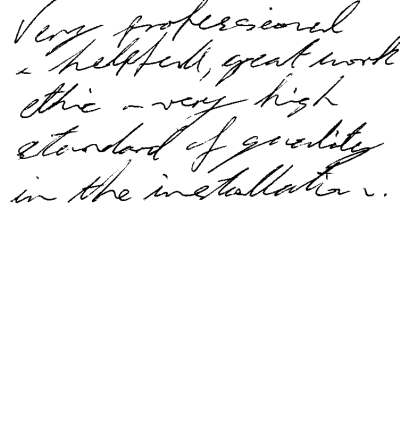 Very professional
& helpful, great work
ethic - very high
standard of quality
in the installation.